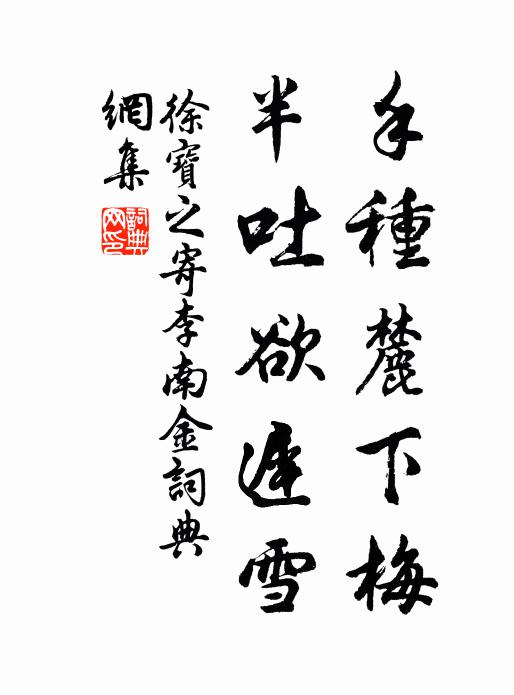 手種麓下梅
半吐欲遲雪
徐寶之寄李南金詞典
網集
詞典网印